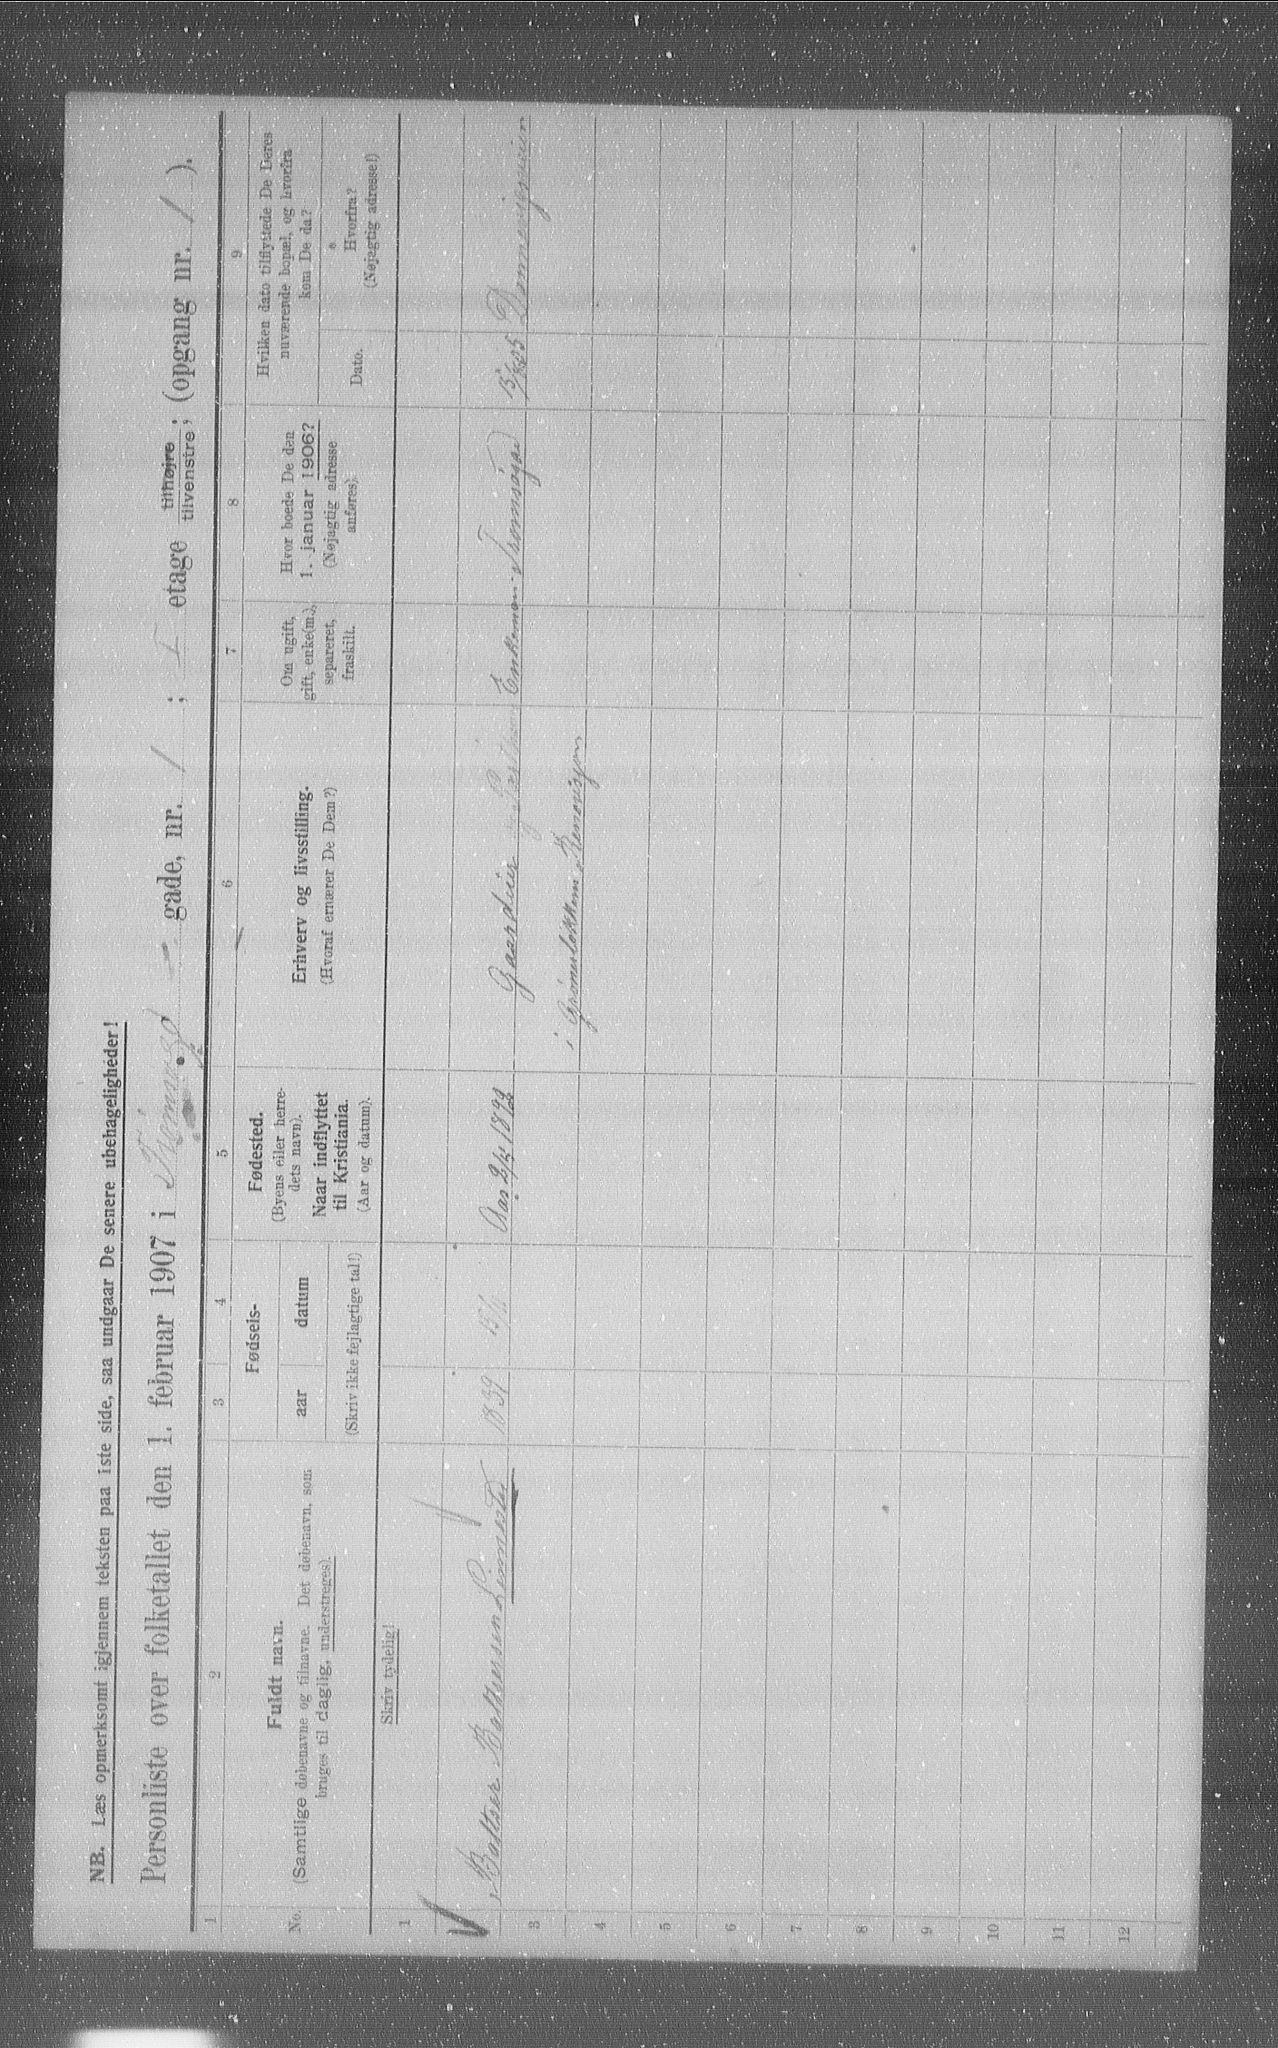 NB. Læs opmerksomt igjennem teksten paa 1ste side, saa undgaar De senere ubehageligheder!
Personliste over folketallet den 1. februar 1907 i Tromsø gade, nr. 1 ; I etage tilhøjre tilvenstre; (opgang nr. 1 ).
1 2 3 4 5 6 7 8 9
No.
Fuldt navn.
(Samtlige døbenavne og tilnavne. Det døbenavn, som
bruges til daglig, understreges).
Fødsels-
aar datum
(Skriv ikke fejlagtige tal!)
Fødested.
(Byens eller herre-
dets navn).
Naar indflyttet
til Kristiania.
(Aar og datum).
Erhverv og livsstilling.
(Hvoraf ernærer De Dem?)
Om ugift,
gift, enke(m.),
separeret,
fraskilt.
Hvor boede De den
1. januar 1906?
(Nøjagtig adresse
anføres).
Hvilken dato tilflyttede De Deres
nuværende bopæl, og hvorfra
kom De da?
Dato.
Hvorfra?
(Nøjagtig adresse!)
Skriv tydelig!
1
Baltser Baltsersen 1839 15/6 Aas Gaardeier Enkemand Tromsøgad
3 i Grønerløkken Renovisjon
4
5
6
7
8
9
10
11
12